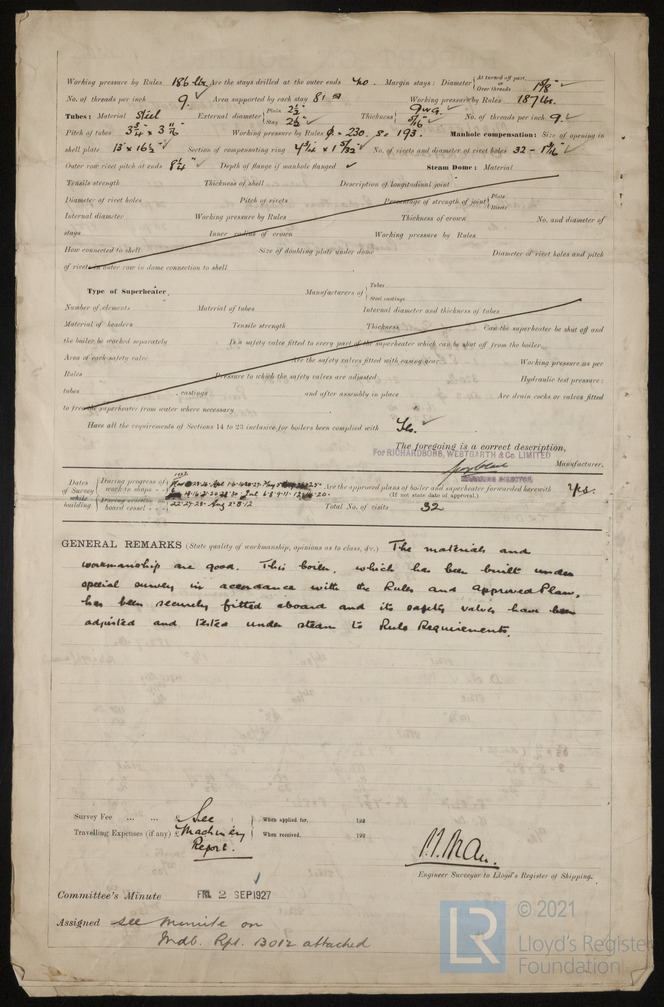 Working pressure by Rules 186 lbs Are the stays drilled at the outer ends No. Margin stays: Diameter { At turned off part, or Over threads 1 5/8" ✓
No. of threads per inch 9. ✓ Area supported by each stay 81 Working pressure by Rules 187 lbs.
Tubes: Material Steel External diameter { Plain 2 1/2" Stay 2 1/2" ✓ Thickness { 9 WG 5/16" ✓ No. of threads per inch 9 ✓
Pitch of tubes 3 3/4 x 3 Working pressure by Rules 230. S. 193. Manhole compensation: Size of opening in
shell plate 13" x 16 1/2" ✓ Section of compensating ring 4 3/4 x 1 5/32" ✓ No. of rivets and diameter of rivet holes 32 - ✓
Outer row rivet pitch at ends 8 1/4" ✓ Depth of flange if manhole flanged ✓ Steam Dome: Material
Tensile strength Thickness of shell Description of longitudinal joint
Diameter of rivet holes Pitch of rivets Percentage of strength of joint { Plate Rivets
Internal diameter Working pressure by Rules Thickness of crown No. and diameter of
stays Inner radius of crown Working pressure by Rules
How connected to shell Size of doubling plate under dome Diameter of rivet holes and pitch
of rivets in outer row in dome connection to shell
Type of Superheater Manufacturers of { Tubes Steel castings
Number of elements Material of tubes Internal diameter and thickness of tubes
Material of headers Tensile strength Thickness Can the superheater be shut off and
the boiler be worked separately Is a safety valve fitted to every part of the superheater which can be shut off from the boiler
Area of each safety valve Are the safety valves fitted with easing gear Working pressure as per
Rules Pressure to which the safety valves are adjusted Hydraulic test pressure:
tubes , castings and after assembly in place Are drain cocks or valves fitted
to free the superheater from water where necessary
Have all the requirements of Sections 14 to 23 inclusive for boilers been complied with Yes. ✓
The foregoing is a correct description,
For RICHARDSONS, WESTGARTH & Co. LIMITED
Manufacturer.
Dates of Survey while building { During progress of work in shops - - During erection on board vessel - - - 22-27-28- Aug 2-8-12
Are the approved plans of boiler and superheater forwarded herewith Yes.
(If not state date of approval.)
Total No. of visits 32
GENERAL REMARKS (State quality of workmanship, opinions as to class, &c.) The materials and
workmanship are good. This boiler, which has been built under
special survey in accordance with the Rules and approved Plan,
has been securely fitted aboard and its safety valves have been
adjusted and tested under steam to Rule Requirements.
Survey Fee ... ... £ See When applied for, 192
Travelling Expenses (if any) £ Machinery When received, 192
Report.
Engineer Surveyor to Lloyd's Register of Shipping.
Committee's Minute FRI. 2 SEP 1927
Assigned See minute on
Mdb. Rpt. 13012 attached
LR © 2021
Lloyd's Register
Foundation